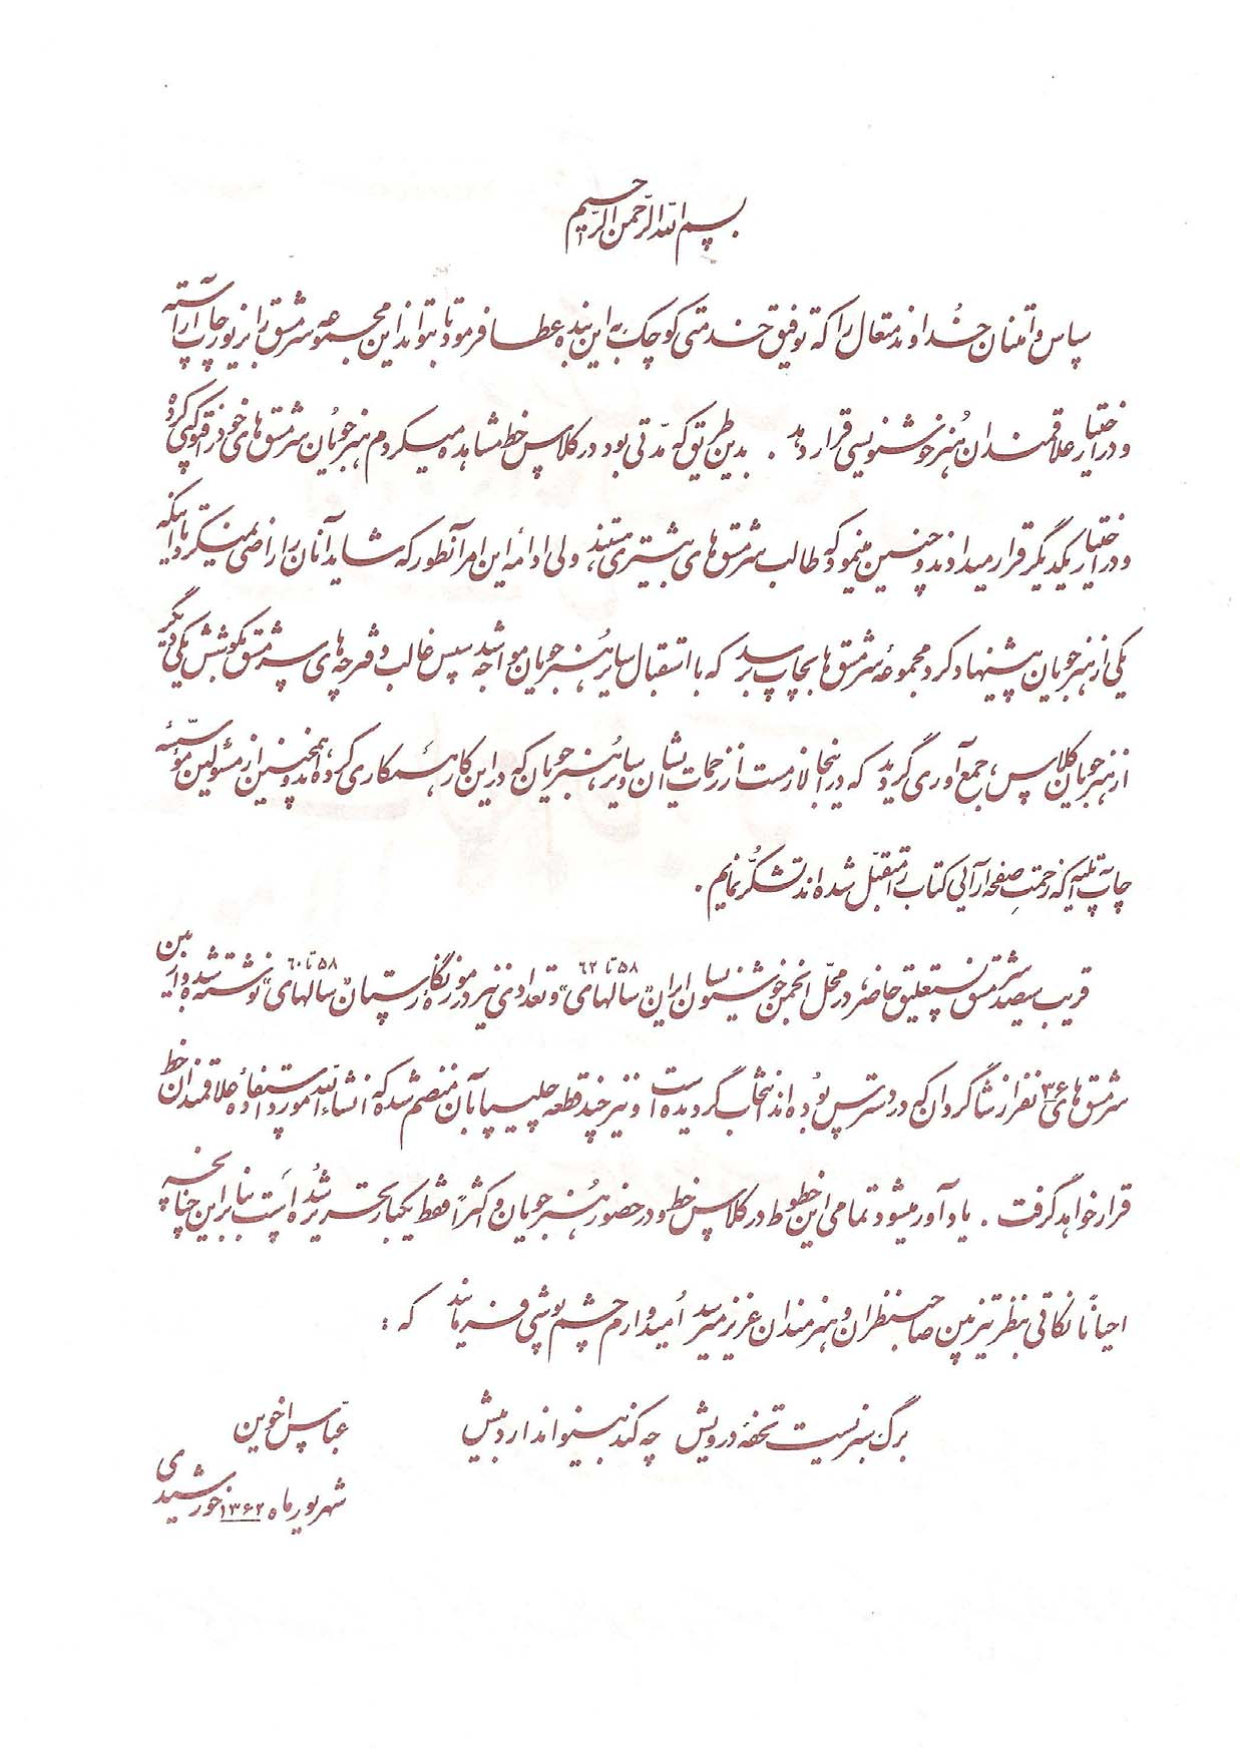 بسم الله الرّحمن الرّحیم
سپاس و امتنان خُداوند متعال را که توفیق خدمتی کوچک به این بنده عطا فرمود تا بتواند این مجموعه سرمشق را بزیور چاپ آراسته
و در اختیار علاقمندان هُنر خوشنویسی قرار دهد . بدین طریق که مدّتی بود در کلاس خط مشاهده میکردم هنرجویان سرمشق‌های خود را فتوکپی کرده
و در اختیار یکدیگر قرار میدادند و چنین مینمود که طالب سرمشق‌های بیشتری هستند، ولی ادامهٔ این امر آنطور که شاید آنان را راضی نمیکرد تا اینکه
یکی از هنرجویان پیشنهاد کرد مجموعهٔ سرمشق‌ها بچاپ برسد که با استقبال سایر هُنرجویان مواجه شد سپس غالب دفترچه‌های سرمشق بکوشش یکی دیگر
از هنرجویان کلاس، جمع‌آوری گردید که در اینجا لازمست از زحمات ایشان و سایر هُنرجویان که در این کار همکاری کرده‌اند و همچنین از مسئولین مؤسّسهٔ
چاپ که زحمتِ صفحه‌آرایی کتاب را متقبّل شده‌اند تشکُّر نمایم .
قریب سیصد سرمشق نستعلیق حاضر، در محّل انجمن خوشنویسان ایران "سالهای ۵۸ تا ۶۲" و تعدادی نیز در موزه نگارستان "سالهای ۵۸ تا ۶۰" نوشته شده و از بین
سرمشق‌های ۳۶ نفر از شاگردان که در دسترس بُوده‌اند انتخاب گردیده است و نیز چند قطعه چلیپا بآن منضم شد که انشاءالله مورد استفادهٔ علاقمندان خط
قرار خواهد گرفت . یادآور میشود تمامی این خطوط در کلاس خط و در حضور هُنرجویان و اکثراً فقط یکبار تحریر شُده است بنابراین چنانچه
احیاناً نکاتی بنظر تیزبین صاحبنظران و هنرمندان عزیز میرسد اُمیدوارم چشم‌پوشی فرمایند که :
برگ سبزیست تحفهٔ درویش چه کند بینوا ندارد بیش
عبّاس اخوین
شهریور ماه ۱۳۶۲ خورشیدی